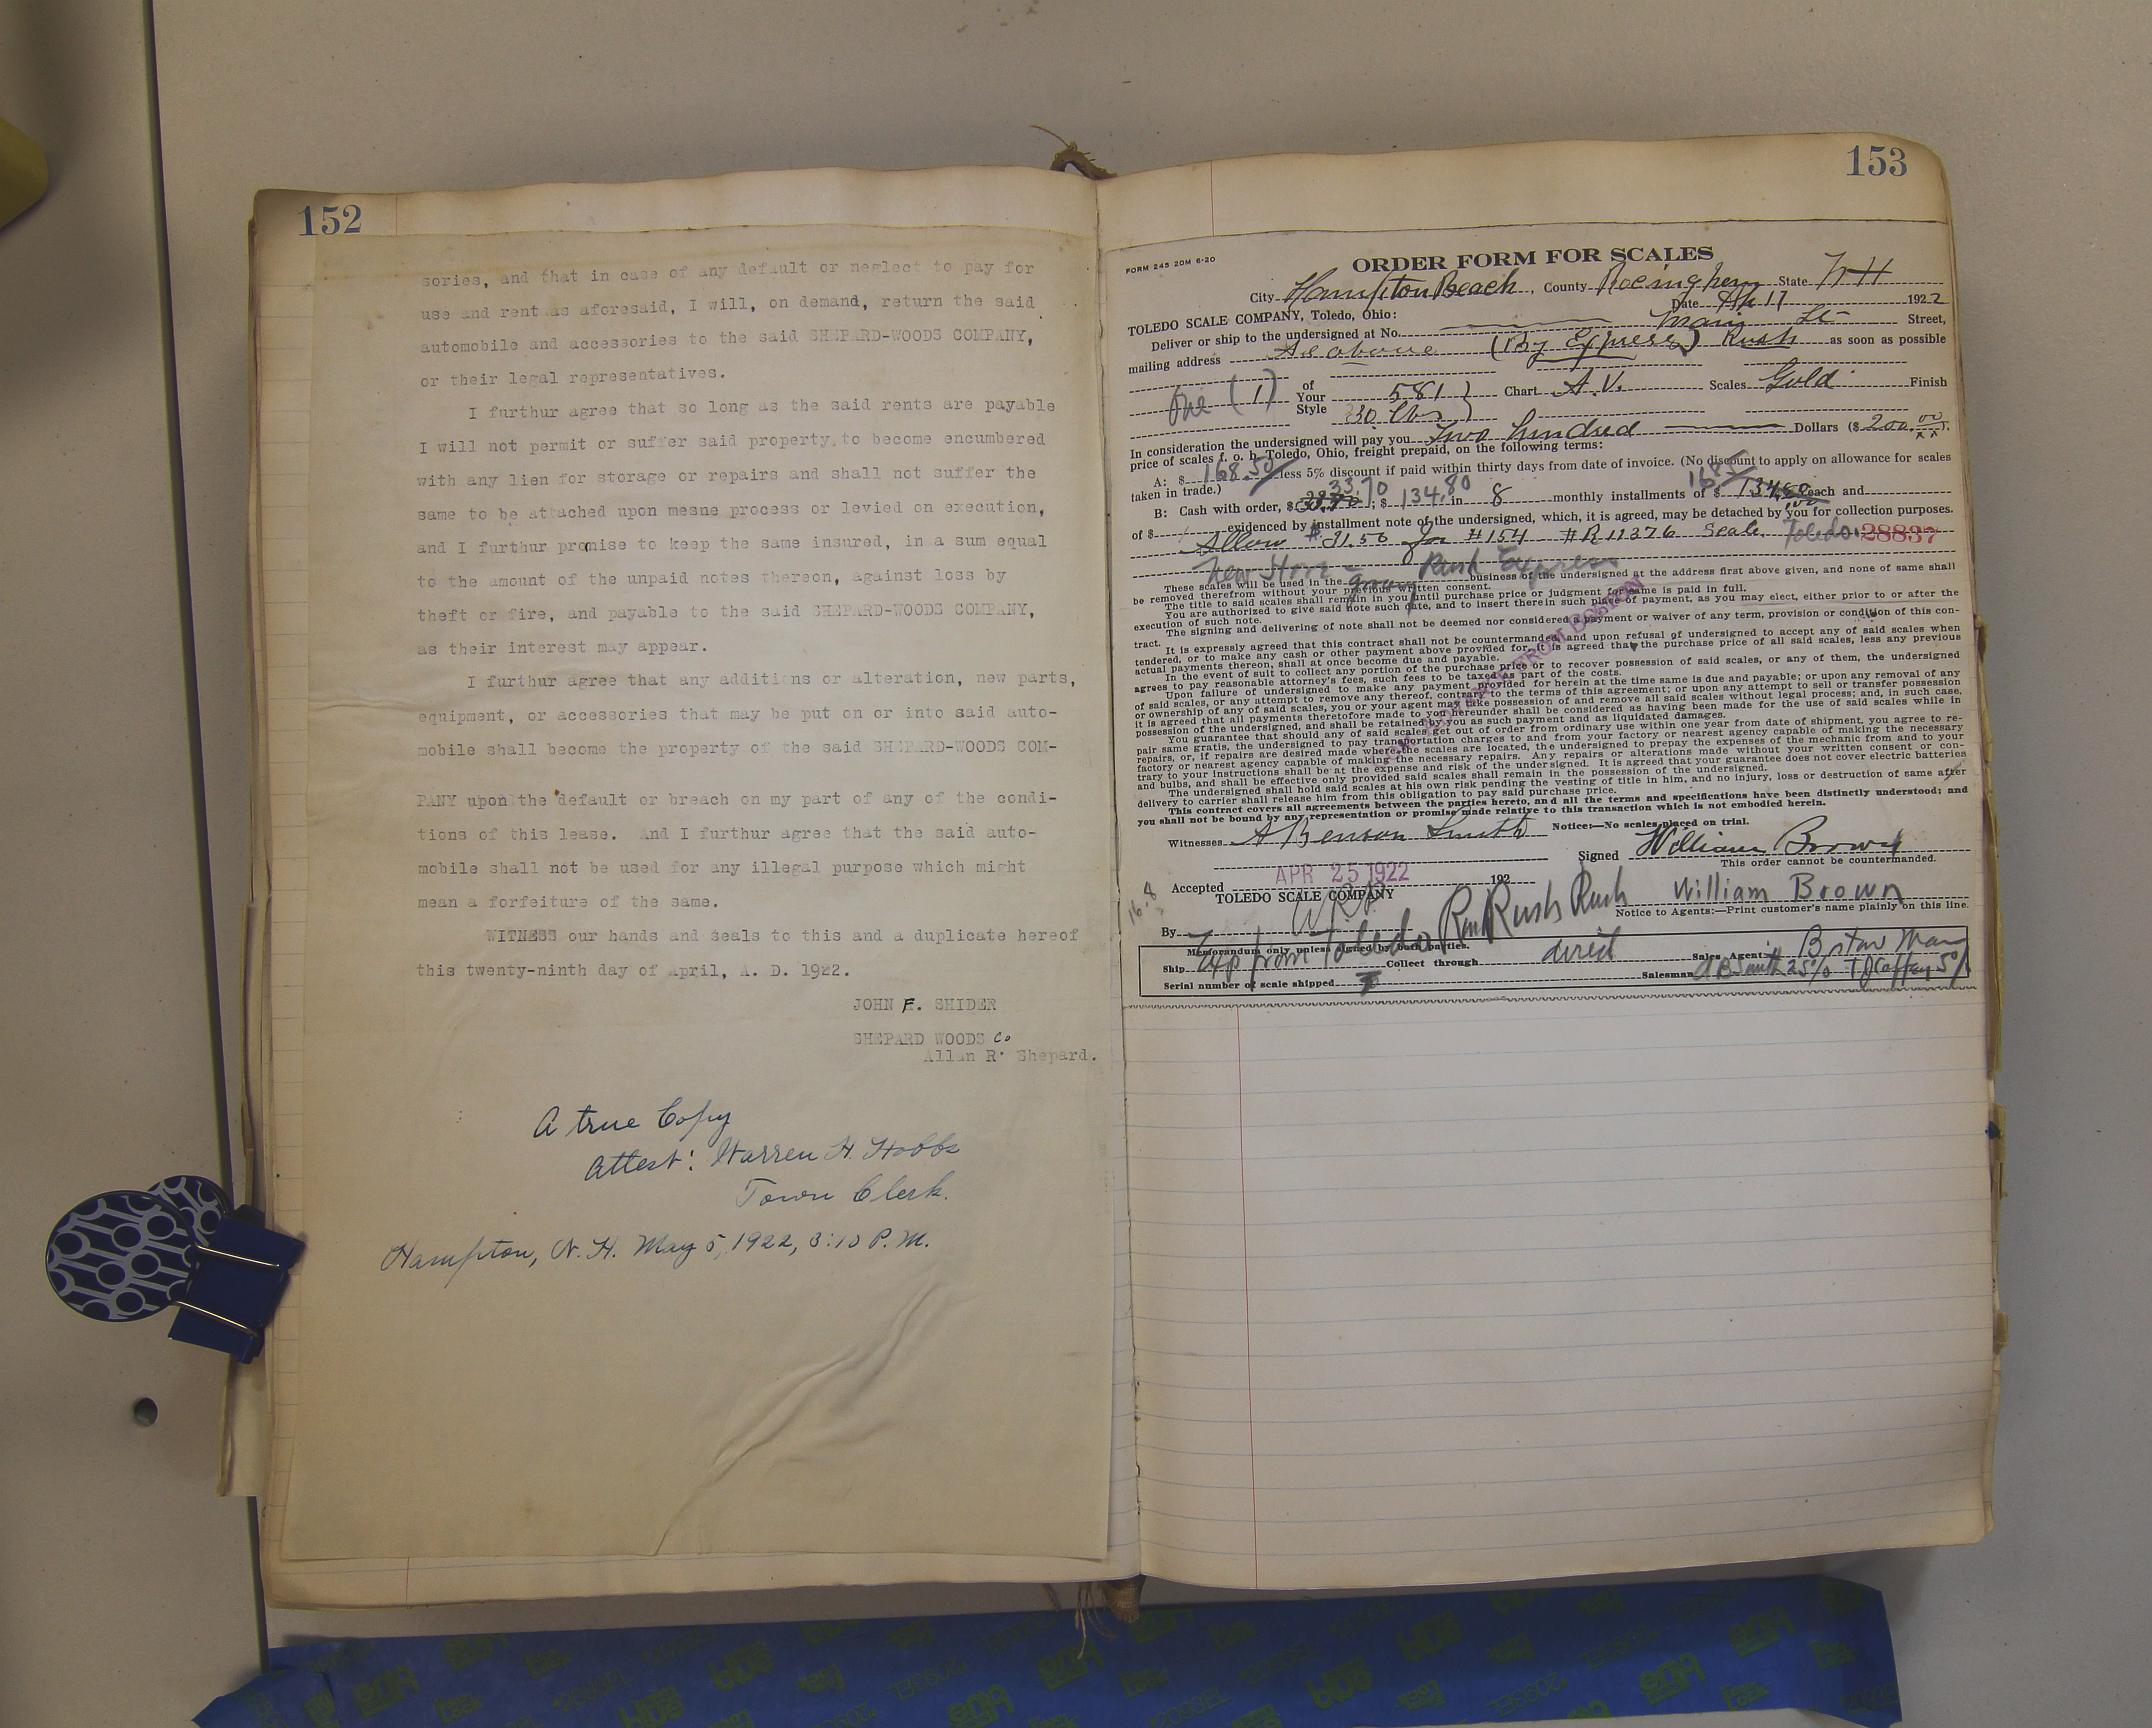 152
sories, and that in case of any default or neglect to pay for
use and rent as aforesaid, I will, on demand, return the said
automobile and accessories to the said SHEPARD-WOODS COMPANY,
or their legal representatives.
I furthur agree that so long as the said rents are payable
I will not permit or suffer said property to become encumbered
with any lien for storage or repairs and shall not suffer the
same to be attached upon mesne process or levied on execution,
and I furthur promise to keep the same insured, in a sum equal
to the amount of the unpaid notes thereon, against loss by
theft or fire, and payable to the said SHEPARD-WOODS COMPANY,
as their interest may appear.
I furthur agree that any additions or alteration, new parts,
equipment, or accessories that may be put on or into said auto-
mobile shall become the property of the said SHEPARD-WOODS COM-
PANY upon the default or breach on my part of any of the condi-
tions of this lease. And I furthur agree that the said auto-
mobile shall not be used for any illegal purpose which might
mean a forfeiture of the same.
WITNESS our hands and seals to this and a duplicate hereof
this twenty-ninth day of April, A. D. 1922.
JOHN F. SHIDER
SHEPARD WOODS Co
Allan R. Shepard.
A true Copy
Attest: Warren H. Hobbs
Town Clerk.
Hampton, N. H. May 5, 1922, 3:10 P. M.
153
FORM 245 20M 6-20
ORDER FORM FOR SCALES
City Hampton Beach, County Rocingham State N H
Date Ap 17 1922
TOLEDO SCALE COMPANY, Toledo, Ohio:
Deliver or ship to the undersigned at No. Main St Street,
mailing address As above (By Express) Rush as soon as possible
One (1) of Your Style 581 30 lbs Chart A.V. Scales Gold Finish
In consideration the undersigned will pay you Two hundred Dollars ($200.00).
price of scales f. o. b. Toledo, Ohio, freight prepaid, on the following terms:
A: $168.50 less 5% discount if paid within thirty days from date of invoice. (No discount to apply on allowance for scales
taken in trade.)
B: Cash with order, $33.70; $134.80 in 8 monthly installments of $16.85 each and
of $ evidenced by installment note of the undersigned, which, it is agreed, may be detached by you for collection purposes.
Allow $31.50 for #154 #R11376 Scale Toledo. 28837
New Store Rush Express
These scales will be used in the grocery business of the undersigned at the address first above given, and none of same shall
be removed therefrom without your previous written consent.
The title to said scales shall remain in you until purchase price or judgment for same is paid in full.
You are authorized to give said note such date, and to insert therein such place of payment, as you may elect, either prior to or after the
execution of such note.
The signing and delivering of note shall not be deemed nor considered a payment or waiver of any term, provision or condition of this con-
tract.
It is expressly agreed that this contract shall not be countermanded, and upon refusal of undersigned to accept any of said scales when
tendered, or to make any cash or other payment above provided for, it is agreed that the purchase price of all said scales, less any previous
actual payments thereon, shall at once become due and payable.
In the event of suit to collect any portion of the purchase price or to recover possession of said scales, or any of them, the undersigned
agrees to pay reasonable attorney's fees, such fees to be taxed as part of the costs.
Upon failure of undersigned to make any payment provided for herein at the time same is due and payable; or upon any removal of any
of said scales, or any attempt to remove any thereof, contrary to the terms of this agreement; or upon any attempt to sell or transfer possession
or ownership of any of said scales, you or your agent may take possession of and remove all said scales without legal process; and, in such case,
it is agreed that all payments theretofore made to you hereunder shall be considered as having been made for the use of said scales while in
possession of the undersigned, and shall be retained by you as such payment and as liquidated damages.
You guarantee that should any of said scales get out of order from ordinary use within one year from date of shipment, you agree to re-
pair same gratis, the undersigned to pay transportation charges to and from your factory or nearest agency capable of making the necessary
repairs, or, if repairs are desired made where the scales are located, the undersigned to prepay the expenses of the mechanic from and to your
factory or nearest agency capable of making the necessary repairs. Any repairs or alterations made without your written consent or con-
trary to your instructions shall be at the expense and risk of the undersigned. It is agreed that your guarantee does not cover electric batteries
and bulbs, and shall be effective only provided said scales shall remain in the possession of the undersigned.
The undersigned shall hold said scales at his own risk pending the vesting of title in him, and no injury, loss or destruction of same after
delivery to carrier shall release him from this obligation to pay said purchase price.
This contract covers all agreements between the parties hereto, and all the terms and specifications have been distinctly understood; and
you shall not be bound by any representation or promise made relative to this transaction which is not embodied herein.
Witnesses A Benson Smith Notice:—No scales placed on trial.
Signed William Brown
This order cannot be countermanded.
Accepted APR 25 1922 192
TOLEDO SCALE COMPANY
William Brown
Notice to Agents:—Print customer's name plainly on this line.
By Rush Rush Rush
Memorandum only unless signed by both parties.
Ship Exp from Toledo Collect through direct Sales Agent
Serial number of scale shipped Salesman A B Smith 25%